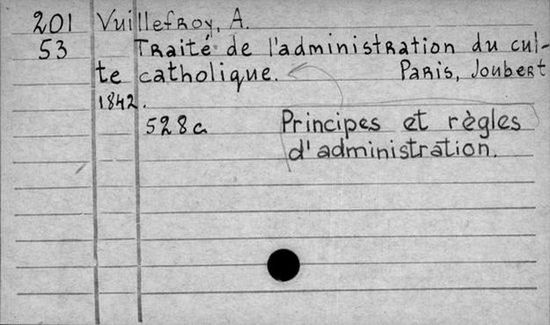 201 Vuillefroy, A.
53 Traité de l'administration du cul-
te catholique. Paris, Joubert
1842.
528 c.
Principes et règles
d'administration.